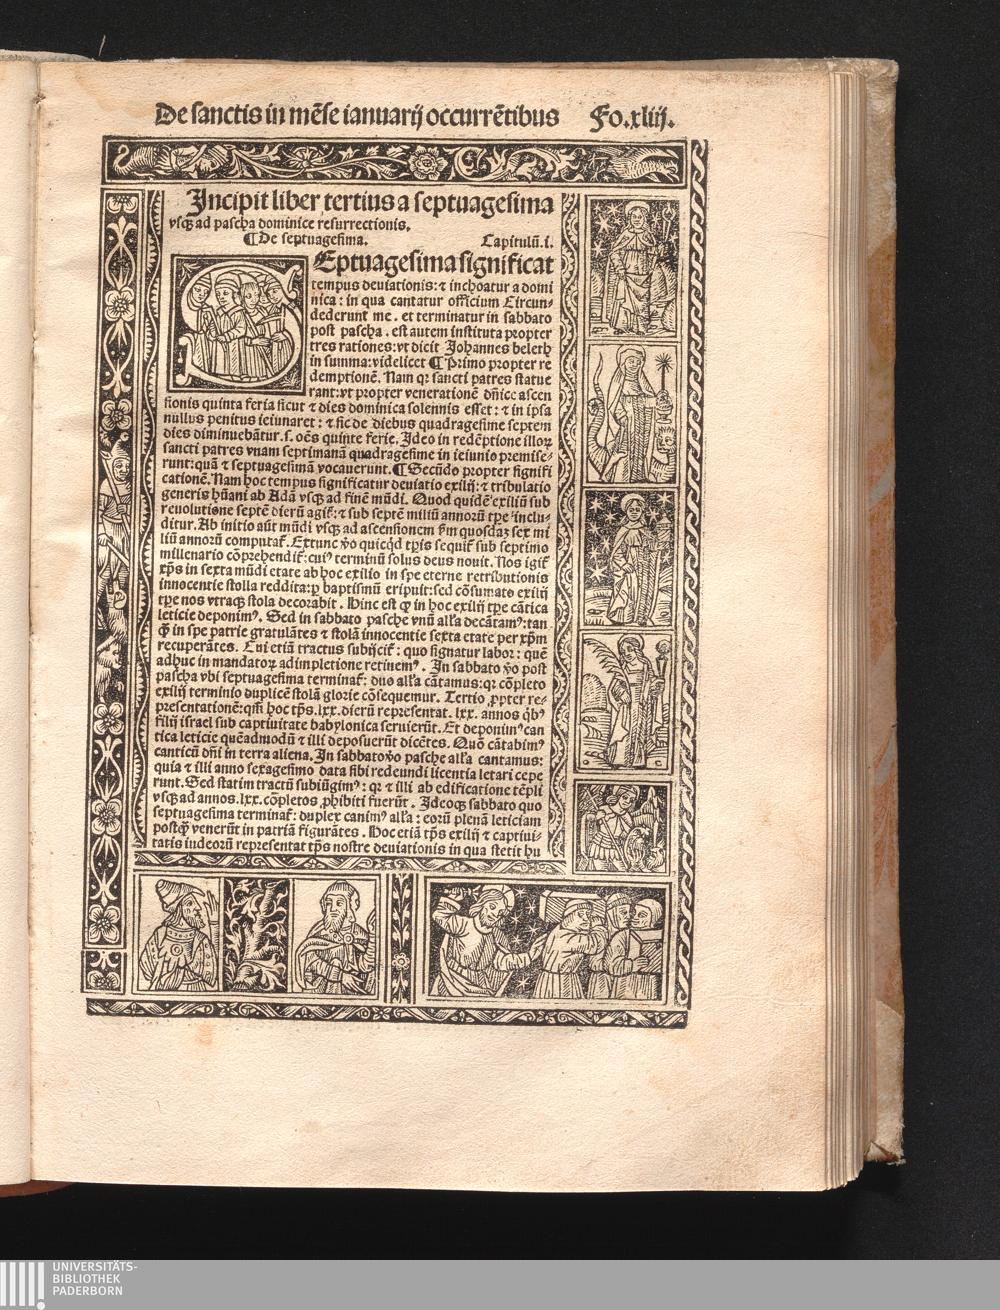 De sanctis in mēse ianuarij occurrētibus Fo.xliij.
Incipit liber tertius a septuagesima
vsqꝫ ad pascha dominice resurrectionis.
¶ De septuagesima. Capitulū.i.
Eptuagesima significat
tempus deuiationis: ⁊ inchoatur a domi
nica: in qua cantatur officium Circun-
dederunt me. et terminatur in sabbato
post pascha. est autem instituta propter
tres rationes: vt dicit Johannes beleth
in summa: videlicet ¶ Primo propter re
demptionē. Nam qꝛ sancti patres statue
rant: vt propter venerationē dn̄ice ascen
sionis quinta feria sicut ⁊ dies dominica solennis esset: ⁊ in ipsa
nullus penitus ieiunaret: ⁊ sic de diebus quadragesime septem
dies diminuebātur. s. oēs quinte ferie. Ideo in redēptione illoꝝ
sancti patres vnam septimanā quadragesime in ieiunio premise-
runt: quā ⁊ septuagesimā vocauerunt. ¶ Secūdo propter signifi
cationē. Nam hoc tempus significatur deuiatio exilij: ⁊ tribulatio
generis hūani ab Adā vsqꝫ ad finē mūdi. Quod quidē exiliū sub
reuolutione septē dierū agit̄: ⁊ sub septē miliū annorū tꝑe inclu-
ditur. Ab initio aūt mūdi vsqꝫ ad ascensionem ẜm quosdaꝫ sex mi
liū annorū computat̄. Extunc v̄o quicq̄d tꝑis sequit̄ sub septimo
millenario cōprehendit̄: cuiꝰ terminū solus deus nouit. Nos igit̄
xp̄s in sexta mūdi etate ab hoc exilio in spe eterne retributionis
innocentie stolla reddita: ꝑ baptismū eripuit: sed cōsumato exilij
tꝑe nos vtraqꝫ stola decorabit. Hinc est ꝙ in hoc exilij tꝑe cātica
leticie deponimꝰ. Sed in sabbato pasche vnū all'a decātamꝰ: tan
ꝙ̄ in spe patrie gratulātes ⁊ stolā innocentie sexta etate per xp̄m
recuperātes. Cui etiā tractus subijcit̄: quo signatur labor: quē
adhuc in mandatoꝝ adimpletione retinemꝰ. In sabbato v̄o post
pascha vbi septuagesima terminat̄: duo all'a cātamus: qꝛ cōpleto
exilij terminio duplicē stolā glorie cōsequemur. Tertio ꝓpter re-
presentationē: qm̄ hoc tp̄s .lxx. dierū representat .lxx. annos q̄bꝰ
filij israel sub captiuitate babylonica seruierūt. Et deponimꝰ can
tica leticie quēadmodū ⁊ illi deposuerūt dicētes. Quō cātabimꝰ
canticū dn̄i in terra aliena. In sabbato v̄o pasche all'a cantamus:
quia ⁊ illi anno sexagesimo data sibi redeundi licentia letari cepe
runt. Sed statim tractū subiūgimꝰ: qꝛ ⁊ illi ab edificatione tēpli
vsqꝫ ad annos .lxx. cōpletos ꝓhibiti fuerūt. Ideoqꝫ sabbato quo
septuagesima terminat̄: duplex canimꝰ all'a: eorū plenā leticiam
postꝙ̄ venerūt in patriā figurātes. Hoc etiā tp̄s exilij ⁊ captiui-
tatis iudeorū representat tp̄s nostre deuiationis in qua stetit hu
UNIVERSITÄTS-
BIBLIOTHEK
PADERBORN